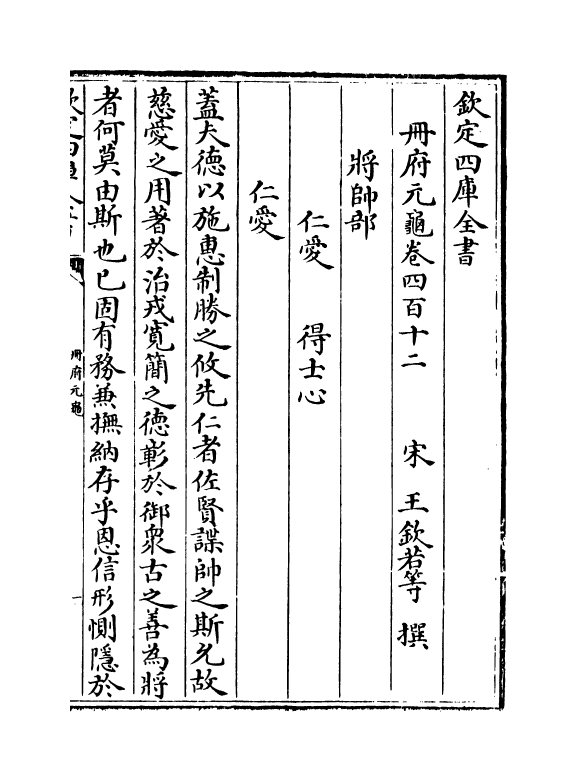 欽定四庫全書
冊府元龜卷四百十二　宋　王欽若等　撰
將帥部
仁愛　得士心
仁愛
蓋夫德以施惠制勝之攸先仁者佐賢謀帥之斯允故
慈愛之用著於治戎寛簡之德彰於御衆古之善為將
者何莫由斯也已固有務兼撫納存乎恩信形惻隱於
冊府元龜
一